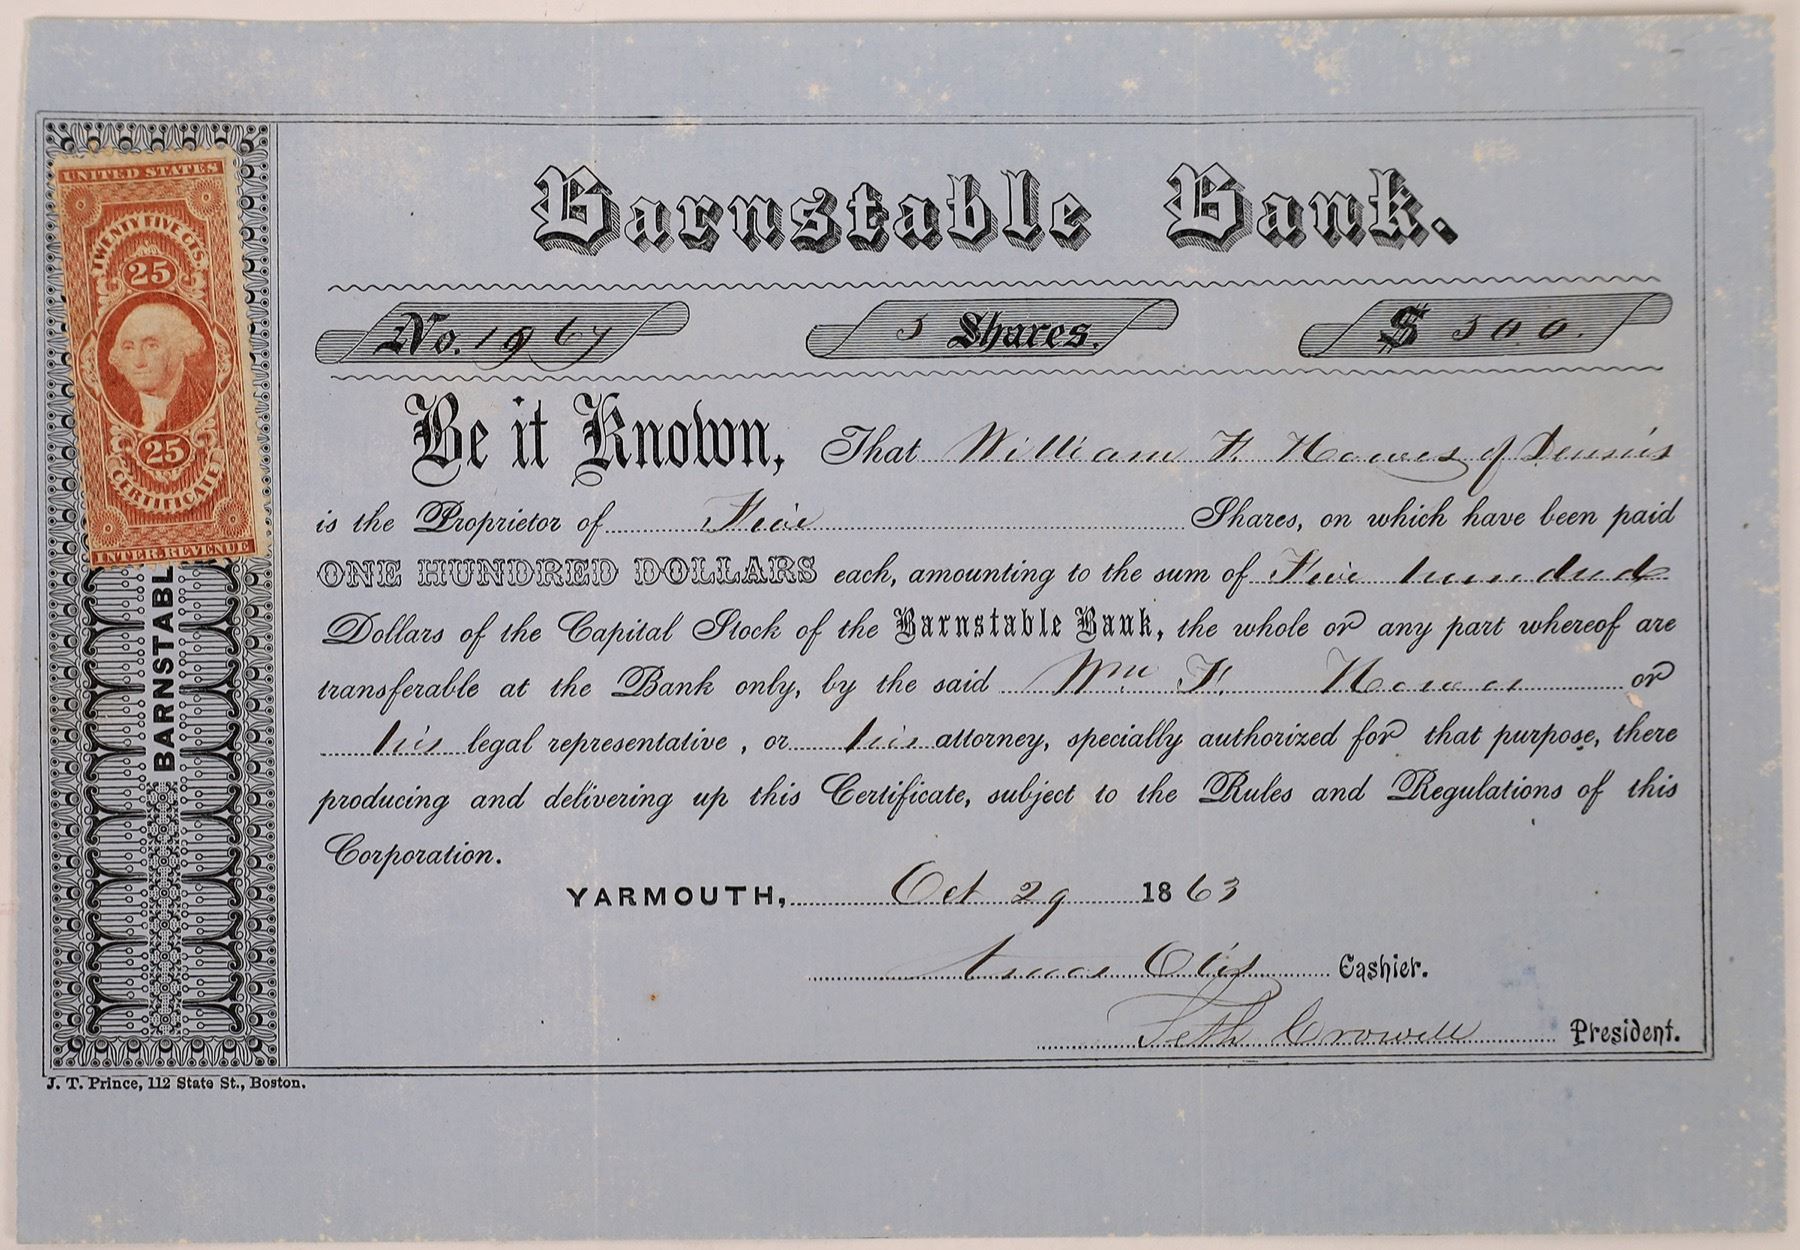 UNITED STATES
TWENTY FIVE CTS.
25
25
CERTIFICATE
INTER. REVENUE
BARNSTABL
Barnstable Bank.
No. 1967 5 Shares. $ 500.
Be it Known, That William F. Howes of Dennis
is the Proprietor of Five Shares, on which have been paid
ONE HUNDRED DOLLARS each, amounting to the sum of Five hundred
Dollars of the Capital Stock of the Barnstable Bank, the whole or any part whereof are
transferable at the Bank only, by the said Wm F. Howes or
his legal representative, or his attorney, specially authorized for that purpose, there
producing and delivering up this Certificate, subject to the Rules and Regulations of this
Corporation.
YARMOUTH, Oct 29 1863
Amos Otis Cashier.
Seth Crowell President.
J. T. Prince, 112 State St., Boston.